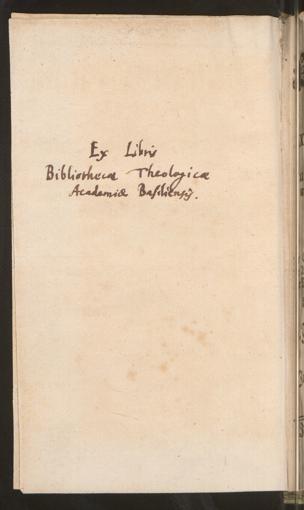 Ex Libris
Bibliothecæ Theologicæ
Academiæ Basiliensis.